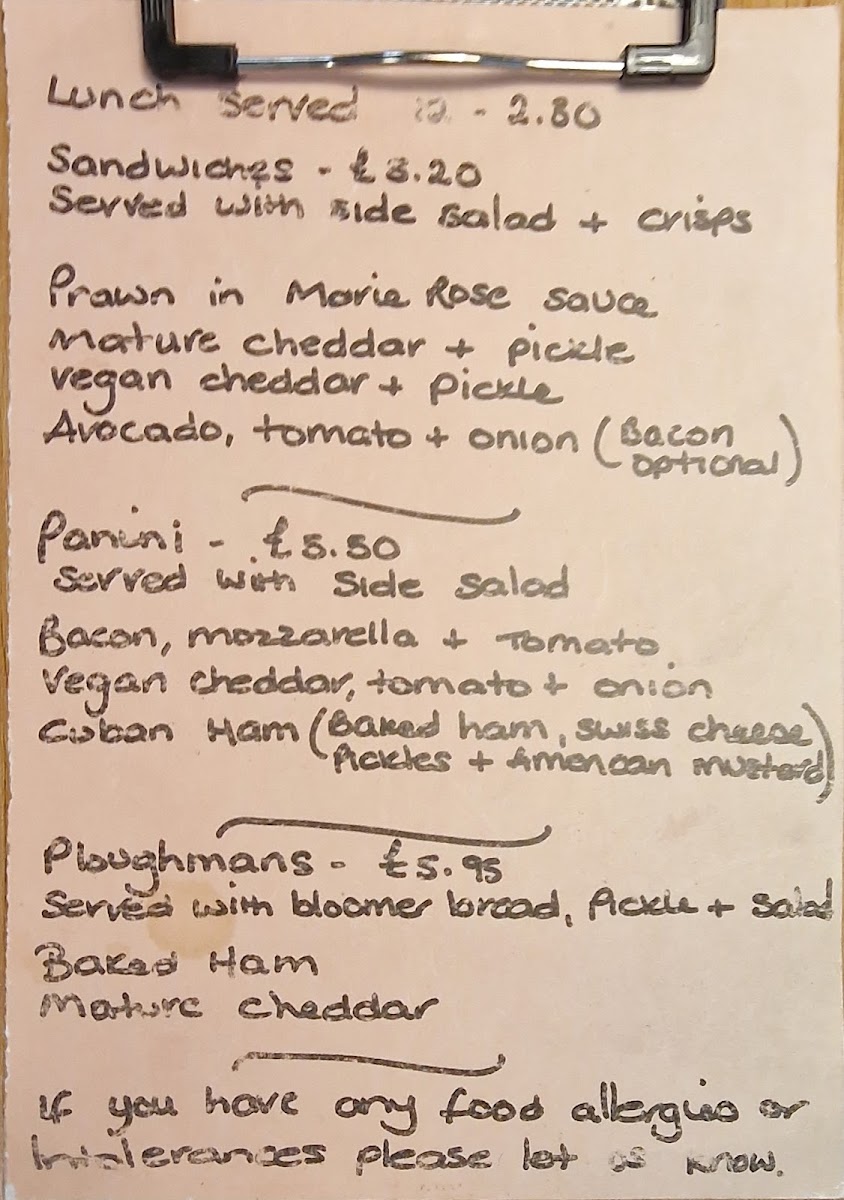 Lunch served 12 - 2.30
Sandwiches - £5.20
Served with side salad + crisps
Prawn in Marie Rose sauce
Mature cheddar + pickle
Vegan cheddar + pickle
Avocado, tomato + onion (Bacon
optional)
Panini - £5.50
Served with side salad
Bacon, mozzarella + Tomato
Vegan cheddar, tomato + onion
Cuban Ham (Baked ham, swiss cheese
Pickles + American mustard)
Ploughmans - £5.95
Served with bloomer bread, Pickle + Salad
Baked Ham
Mature cheddar
If you have any food allergies or
Intolerances please let us know.